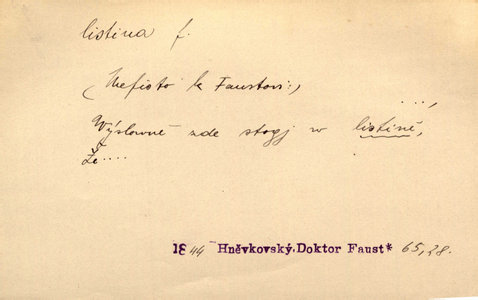 listina f.
(Mefisto k Faustovi:)
....,
Výslowně zde stogj w listině,
Že....
1844 Hněvkovský.Doktor Faust* 65,28.